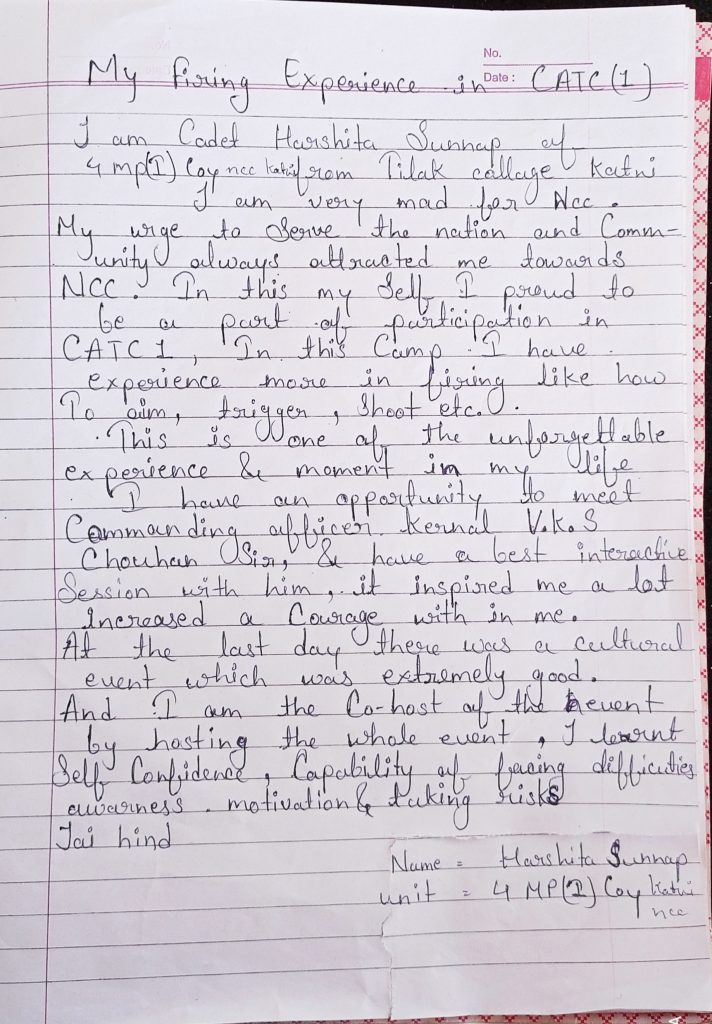 No.
Date :
My firing Experience in CATC(1)
I am Cadet Harshita Sunnap of
4 mp(I) Coy ncc katni from Tilak callage Katni
I am very mad for Ncc.
My urge to Serve the nation and Comm-
unity always attracted me towards
NCC. In this my Self I proud to
be a part of participation in
CATC 1, In this Camp I have
experience more in firing like how
To aim, trigger, shoot etc.
This is one of the unforgettable
experience & moment in my life
I have an opportunity to meet
Commanding officer kernal V.K.S
Chouhan Sir, & have a best interactive
Session with him, it inspired me a lot
Increased a Courage with in me.
At the last day there was a cultural
event which was extremely good.
And I am the Co-host of the event
by hosting the whole event, I learnt
Self Confidence, Capability of facing difficuties
awarness. motivation & taking risks
Jai hind
Name = Harshita Sunnap
unit = 4 MP(I) Coy Katni
ncc